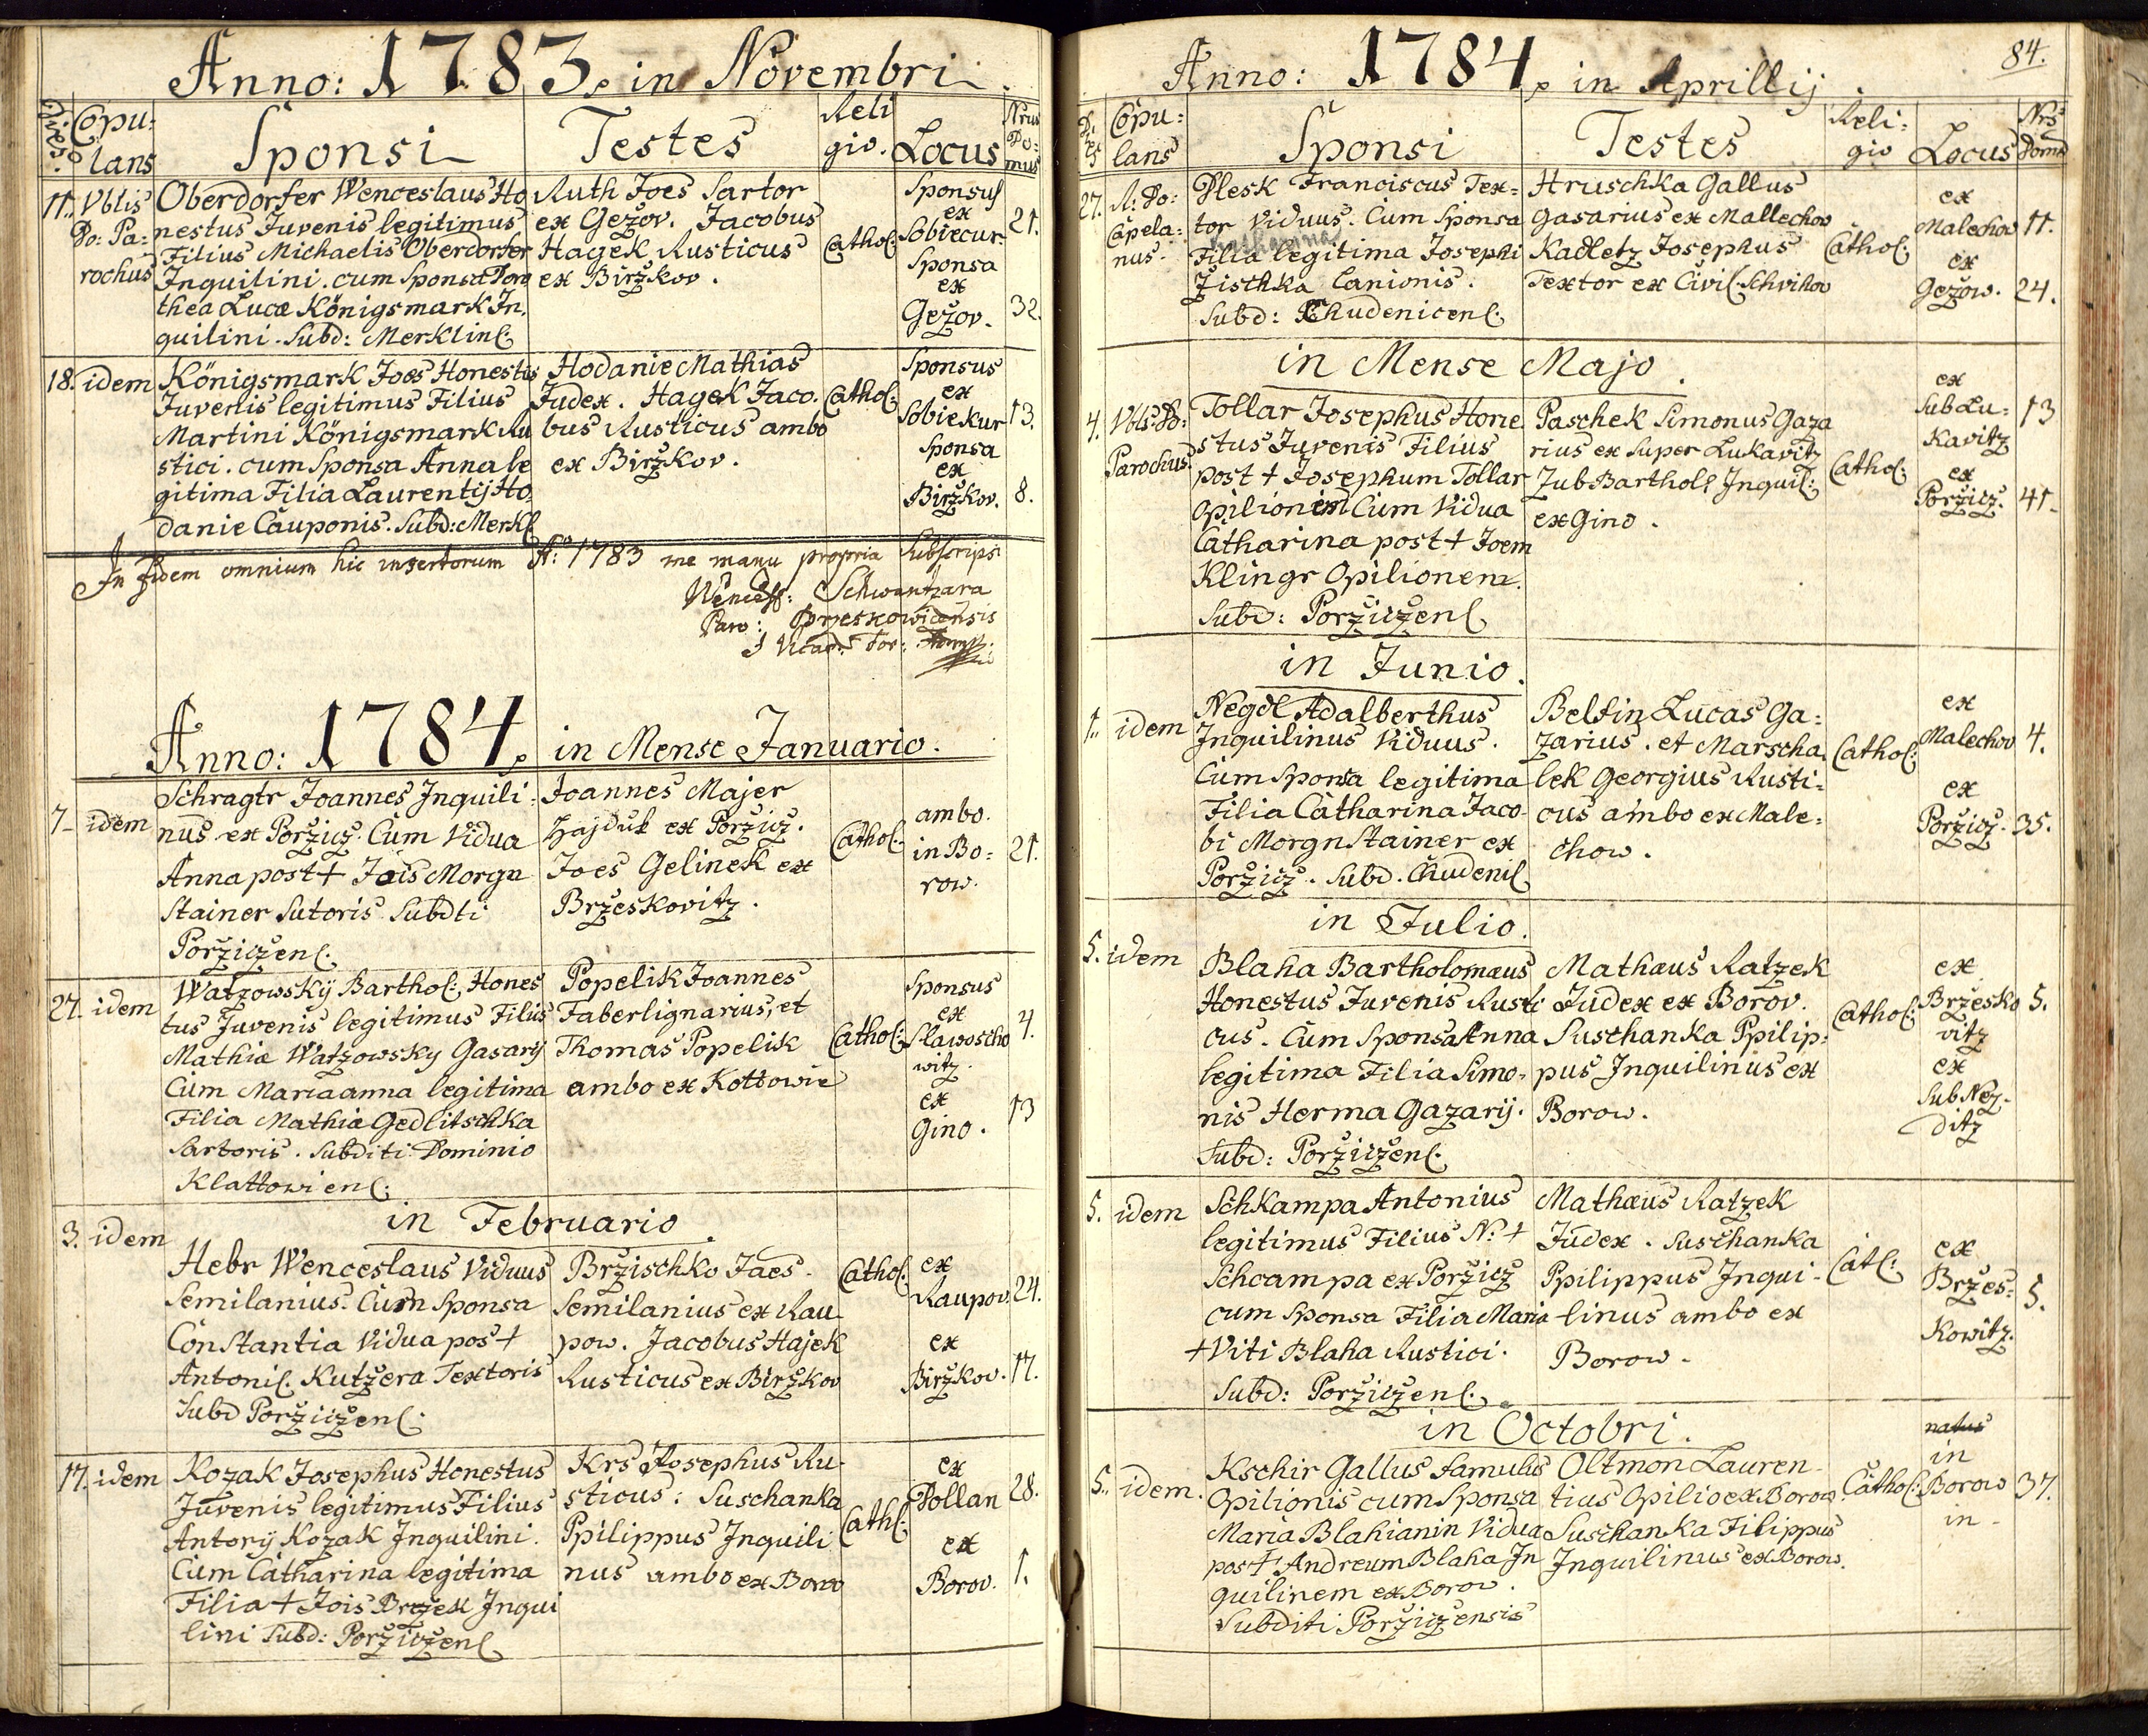 Anno: 1783. in Novembri.
Dies. Copu: lans Sponsi Testes Reli gio. Locus Nrus Do: mus
11. Vblis Do: Pa: rochus
Oberdorfer Wenceslaus Ho
nestus Juvenis legitimus
Filius Michaelis Oberdorfer
Inquilini. cum Sponsa Doro
thea Lucæ Königsmark In,
quilini. Subd: Merklin:
Ruth Joes Sartor
ex Gežov. Jacobus
Hagek Rusticus
ex Biržkov.
Cathol:
Sponsus
ex
Sobiecur
Sponsa
ex
Gežov.
21.
32.
18. idem
Königsmark Joes Honestus
Juvenis legitimus Filius
Martini Königsmark Ru
stici. cum Sponsa Anna le
gitima Filia Laurentij Ho,
danie Cauponis. Subd: Merkl:
Hodanie Mathias
Judex. Hagek Jaco.
bus Rusticus ambo
ex Biržkov.
Cathol:
Sponsus
ex
Sobiekur
Sponsa
ex
Biržkov.
13.
8.
In fidem omnium hic insertorum Aº: 1783 me manu propria Subscripsi
Wencesl: Schwantzara
Paro: Przeskowicensis
Vicar: For:
Anno: 1784. in Mense Januario.
7. idem
Schragtr Joannes Inquili:
nus ex Poržicz. Cum Vidua
Anna post + Jois Morgn
Stainer Sutoris Subdti
Poržiczen:
Joannes Majer
Hajduk ex Poržicz.
Joes Gelinek ex
Brzeskovitz.
Cathol:
ambo.
in Bo:
row.
21.
27. idem
Watzowskÿ Barthol: Hones
tus Juvenis legitimus Filius
Mathiæ Watzowsky Gasarij
Cum Mariaanna legitima
Filia Mathiæ Gedlitschka
Sartoris. Subditi Dominio
Klattowien:
Popelik Joannes
Faberlignarius, et
Thomas Popelik
ambo ex Kottowie
Cathol:
Sponsus
ex
Slawoscho
witz.
ex
Gino.
4.
13
in Februario.
3. idem
Hebr Wenceslaus Viduus
Semilanius. Cum Sponsa
Constantia Vidua post
Antonii. Kutzera Textoris
Subd Poržiczen:
Bržischko Jaes.
Semilanius ex Rau
pow. Jacobus Hajek
Rusticus ex Biržkov
Cathol:
ex
Raupov.
ex
Biržkov.
24.
17.
17. idem
Kozak Josephus Honestus
Juvenis legitimus Filius
Antonij Kozak Inquilini.
Cum Catharina legitima
Filia + Jois Inqui
lini Subd: Poržiczen:
Krs Josephus Ru.
sticus: Suschanka
Ppilippus Inquili
nus ambo ex Borow
Cath:
ex
Dollan
ex
Borov.
28.
1.
84.
Anno: 1784. in Aprillij.
Dies Copu: lans Sponsi Testes Reli: gio Locus Nrs Domus
27. A: Do: Capela: nus.
Plesk Franciscus Tex:
tor Viduus. Cum Sponsa
Katharina
Filia legitima Josephi
Zischka Lanionis.
Subd: Chudenicen:
Hruschka Gallus
Gasarius ex Mallechow
Kadletz Josephus
Textor ex Civil: Schvihov
Cathol:
ex
Malechow
ex
Gežow.
11.
24.
in Mense Majo.
4. Vbls: Do: Parochus.
Tollar Josephus Hone
stus Juvenis Filius
post + Josephum Tollar
Opilionem Cum Vidua
Catharina post + Joem
Klingr Opilionem.
Subd: Poržiczen:
Paschek Simonus Gaza
rius ex Super Lukavitz
Zub Barthol: Inquil:
ex Gino.
Cathol:
ex
SubLu:
kavitz
ex
Poržicz.
13
41.
in Junio.
1. idem
Negdl Adalberthus
Inquilinus Viduus.
Cum Sponsa legitima
Filia Catharina Jaco
bi MorgnStainer ex
Poržicz. Subd. Chudenil:
Beltin Lucas Ga:
zarius. et Marscha,
lek Georgius Rusti:
cus ambo ex Male:
chow.
Cathol:
ex
Malechov
ex
Poržicz.
4.
35.
in Julio.
5. idem
Blaha Bartholomæus
Honestus Juvenis Rusti
cus. Cum Sponsa Anna
legitima Filia Simo,
nis Herma Gazarij.
Subd: Poržiczen:
Mathæus Ratzek
Judex ex Borov.
Suschanka Ppilip:
pus Inquilinius ex
Borow.
Cathol:
ex
Bržesko
vitz
ex
Sub Nez.
ditz
5.
5. idem
Schkampa Antonius
legitimus Filius N: +
Schcampa ex Poržicz
cum Sponsa Filia Maria
+ Viti Blaha Rustici.
Subd: Poržiczen:
Mathæus Ratzek
Judex. Suschanka
Ppilippus Inqui.
linus ambo ex
Borow.
Catl:
ex
Bržes:
kowitz.
5.
in Octobri.
5. idem.
Kschir Gallus famulus
Opilionis cum Sponsa
Maria Blahianin Vidua
post + Andreum Blaha In
quilinem ex Borow.
Subditi Poržiczensis
Oltmon Lauren
tius Opilio ex Borow
Suschanka Filippus
Inquilinus ex Borow.
Cathol:
natus
in
Borow
in
37.